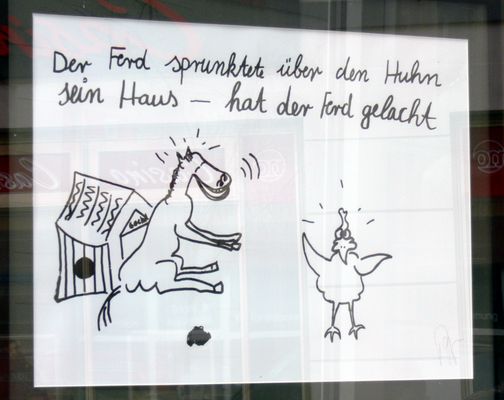 Der Ferd sprunktete über den Huhn
sein Haus – hat der Ferd gelacht